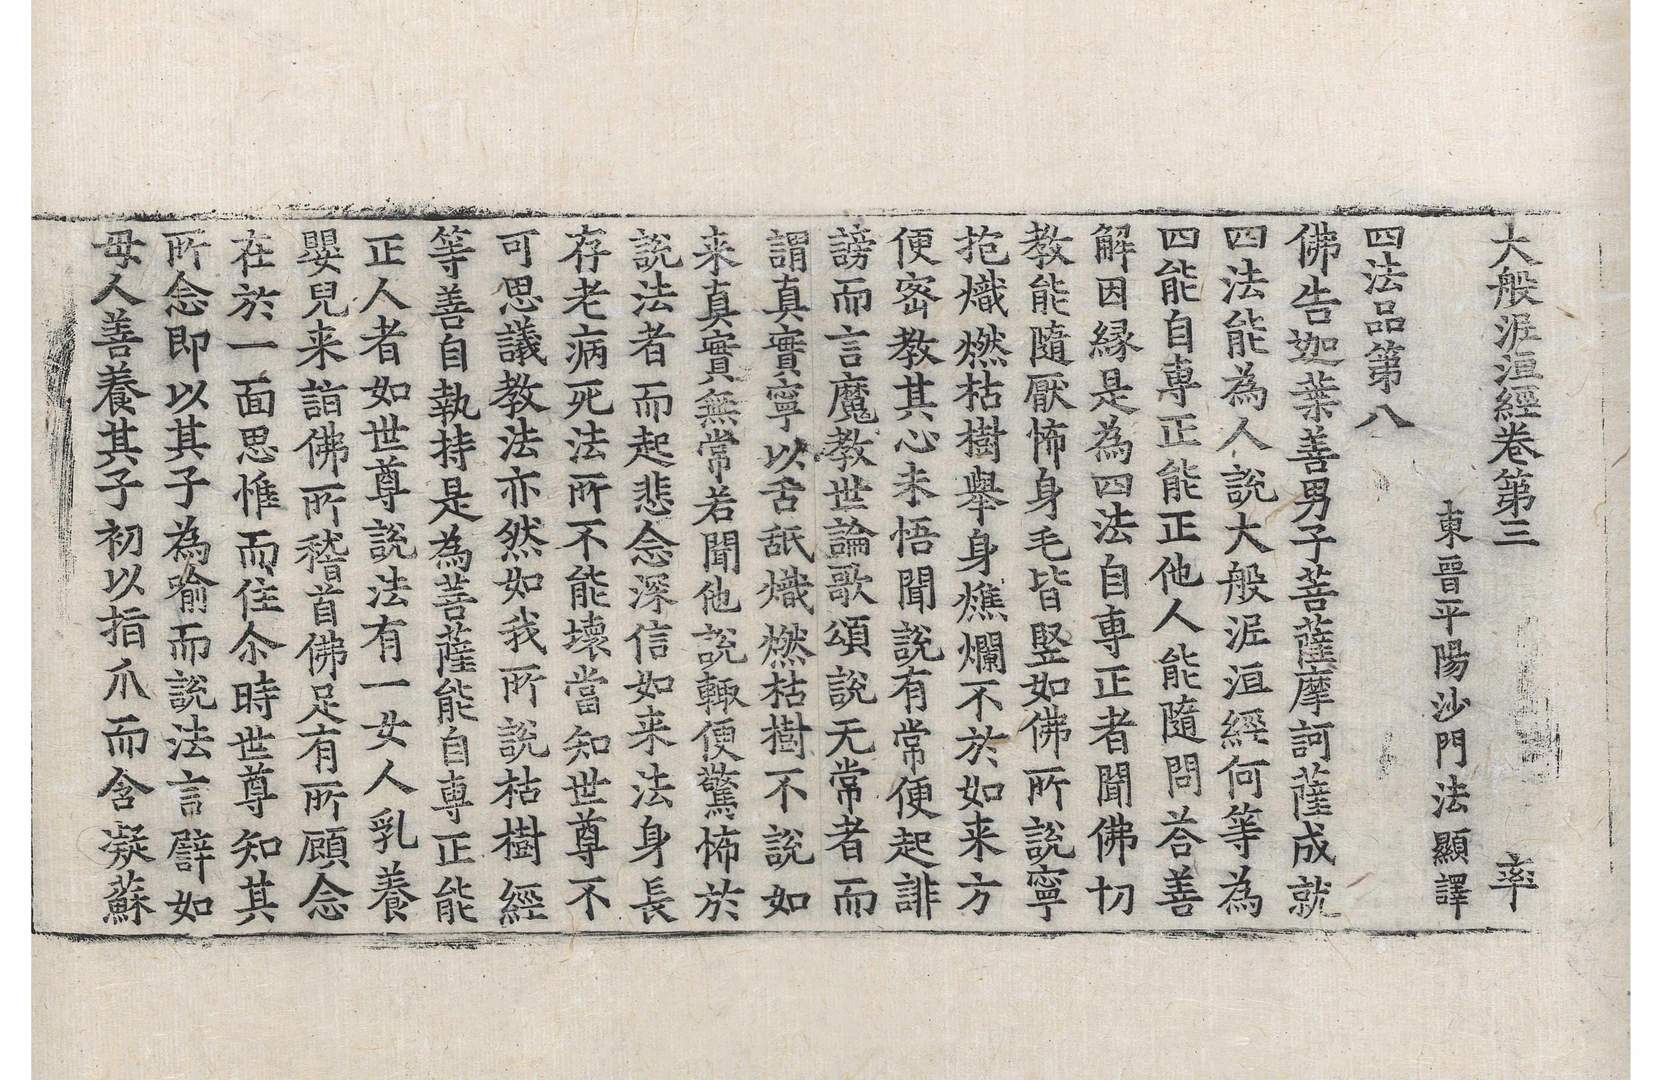 大般泥洹經卷第三　率
東晉平陽沙門法顯譯
四法品第八
佛告迦葉善男子菩薩摩訶薩成就
四法能為人說大般泥洹經何等為
四能自專正能正他人能隨問荅善
解因縁是為四法自專正者聞佛切
教能隨厭怖身毛皆竪如佛所說寧
抱熾燃枯樹舉身燋爛不於如来方
便密教其心未悟聞說有常便起誹
謗而言魔教世論歌頌說无常者而
謂真實寧以舌舐熾燃枯樹不說如
来真實無常若聞他說輙便驚怖於
說法者而起悲念深信如来法身長
存老病死法所不能壞當知世尊不
可思議教法亦然如我所說枯樹經
等善自執持是為菩薩能自專正能
正人者如世尊說法有一女人乳養
嬰兒来詣佛所稽首佛足有所顧念
在於一面思惟而住尒時世尊知其
所念即以其子為喻而說法言譬如
母人善養其子初以指爪而含凝蘇